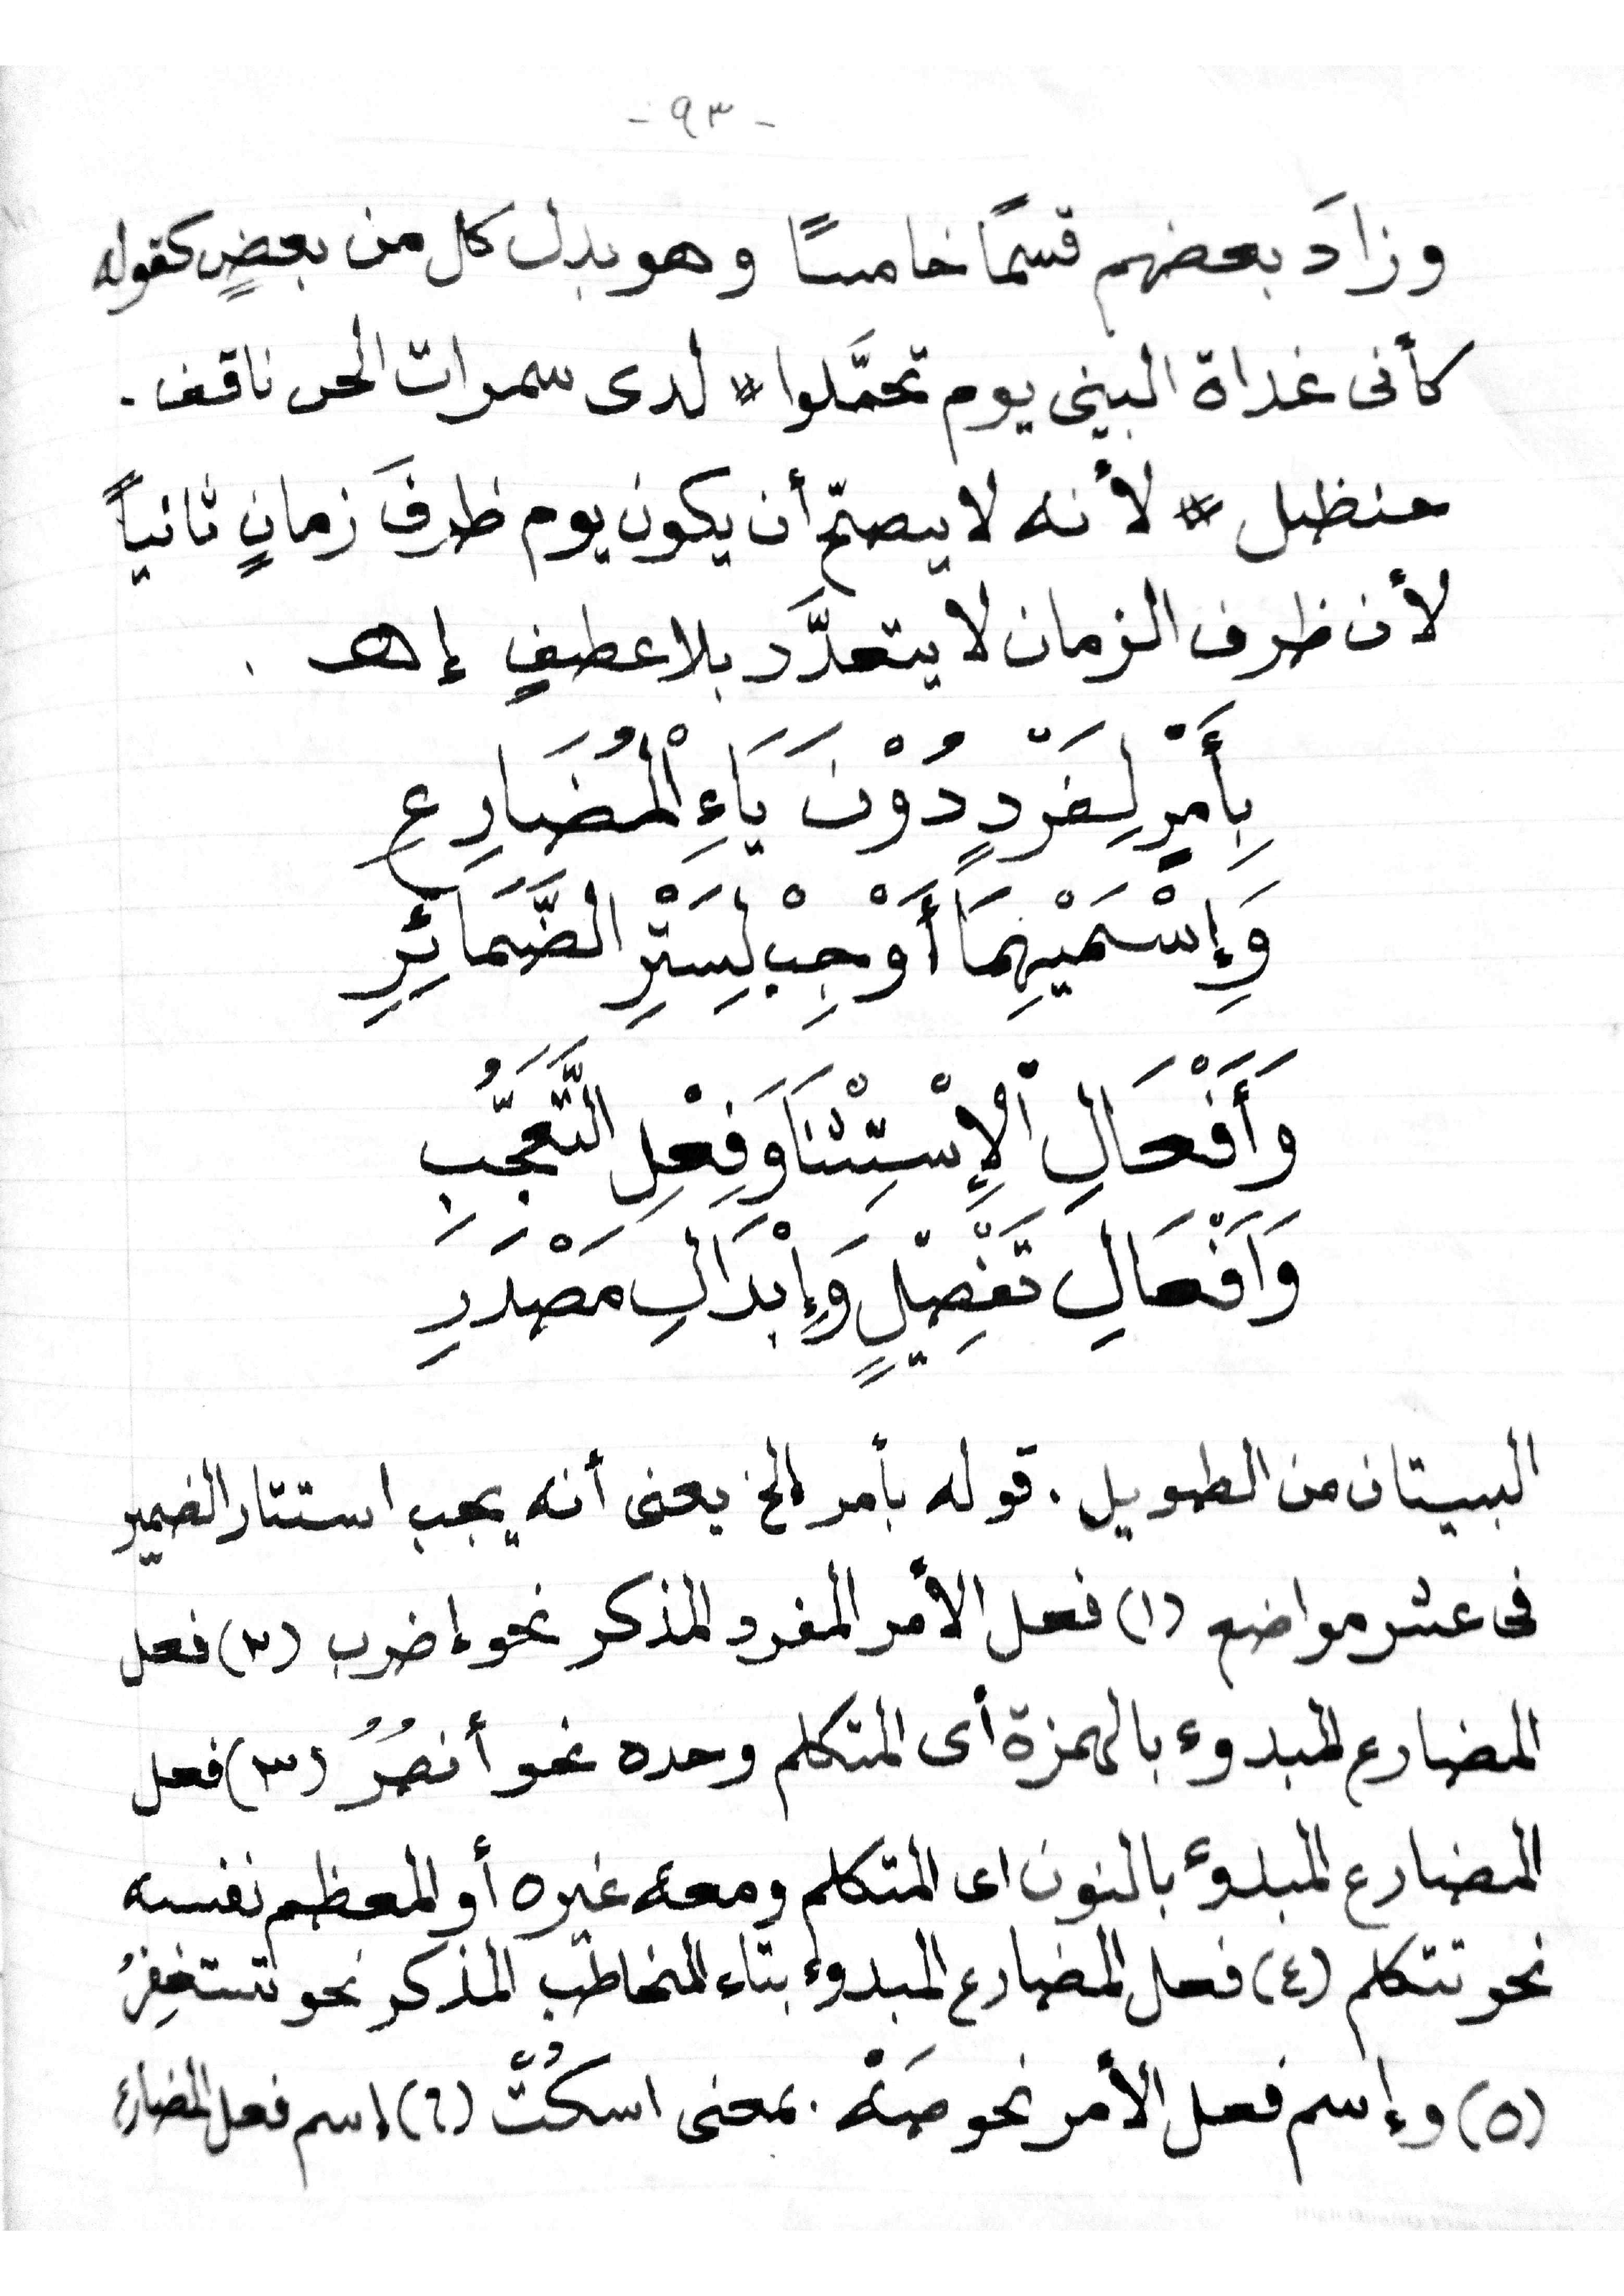 - ٩٣ -
وزادَ بعضهم قسمًا خامسًا وهو بدل كل من بعضٍ كقوله
كأنى غداة البين يوم تحمَّلوا # لدى سمرات الحى ناقف .
حنظل # لأنه لا يصحّ أن يكون يوم ظرفَ زمانٍ ثانياً
لأن ظرف الزمان لا يتعدَّد بلا عطفٍ إهـ .
بِأَمْرٍ لِفَرْدٍ دُوْنَ يَاءِ الْمُضَارِعِ
وَإِسْمَيْهِمَا أَوْجِبْ لِسَتْرِ الضَّمَائِرِ
وَأَفْعَالِ الْإِسْتِثْنَا وَفِعْلِ التَّعَجُّبِ
وَاَفْعَالِ تَفْضِيْلٍ وَإِبْدَالِ مَصْدَرِ
البيتان من الطويل . قوله بأمر الخ يعنى أنه يجب استتار الضمير
فى عشر مواضع (١) فعل الأمر المفرد المذكر نحو إضرب (٢) فعل
المضارع المبدوء بالهمزة أى المتكلم وحده نحو أنصُرُ (٣) فعل
المضارع المبدوء بالنون اى المتكلم ومعه غيره أو المعظم نفسه
نحو نتكلم (٤) فعل المضارع المبدوء بتاء المخاطب المذكر نحو تستغفِرُ
(٥) وإسم فعل الأمر نحو صَهْ . بمعنى اسكُتْ (٦) إسم فعل المضارع